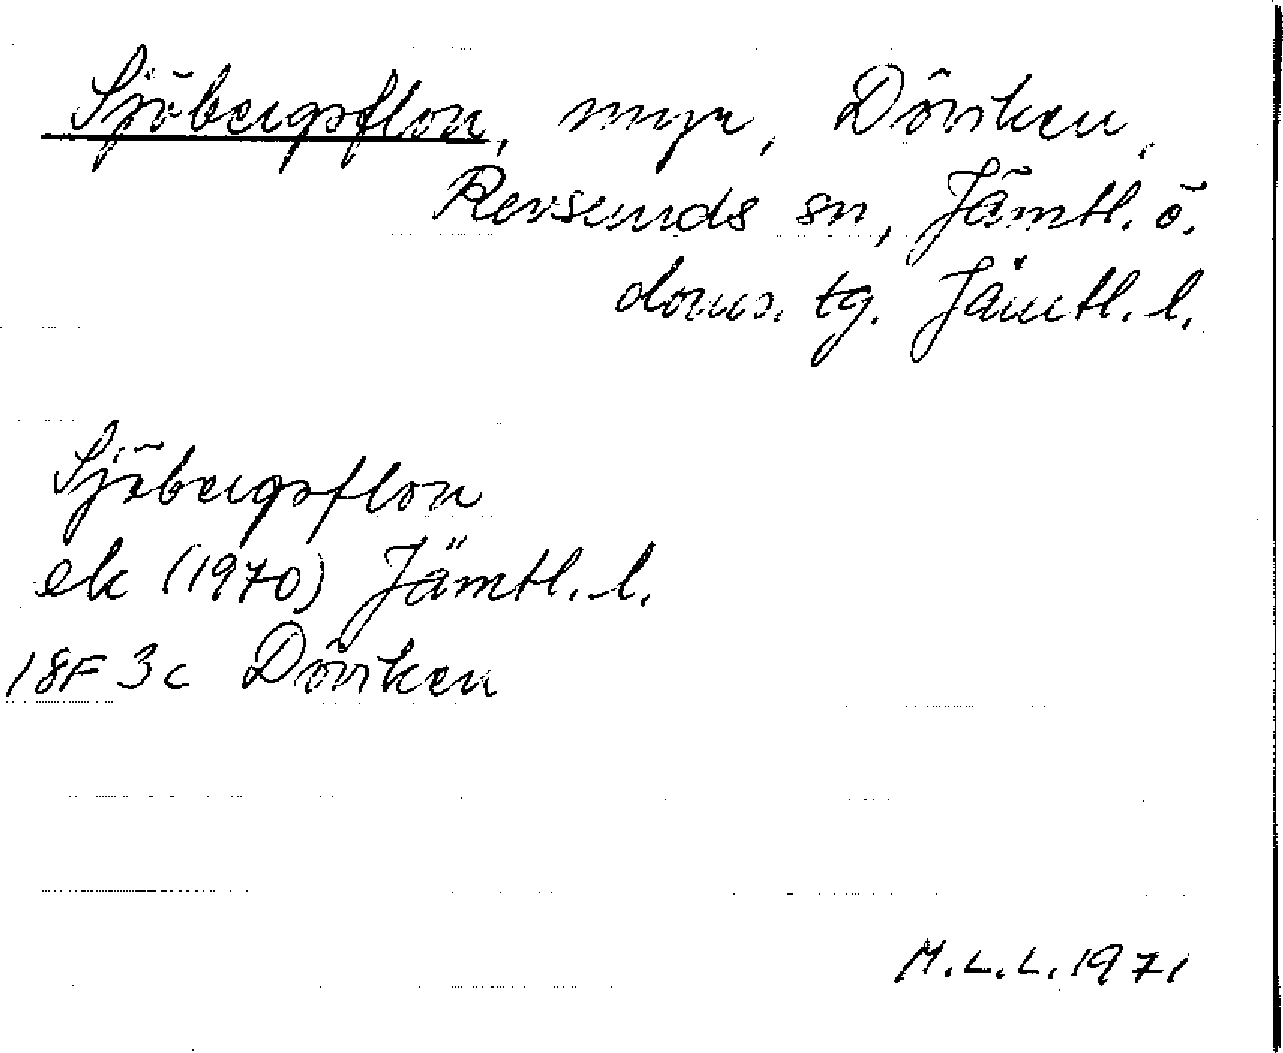 Sjöbergsflon, myr, Döviken,
Revsunds sn, Jämtl. ö.
doms. tg. Jämtl. l.
Sjöbergsflon
ek (1970) Jämtl. l.
18F 3c Döviken
M.L.L. 1971